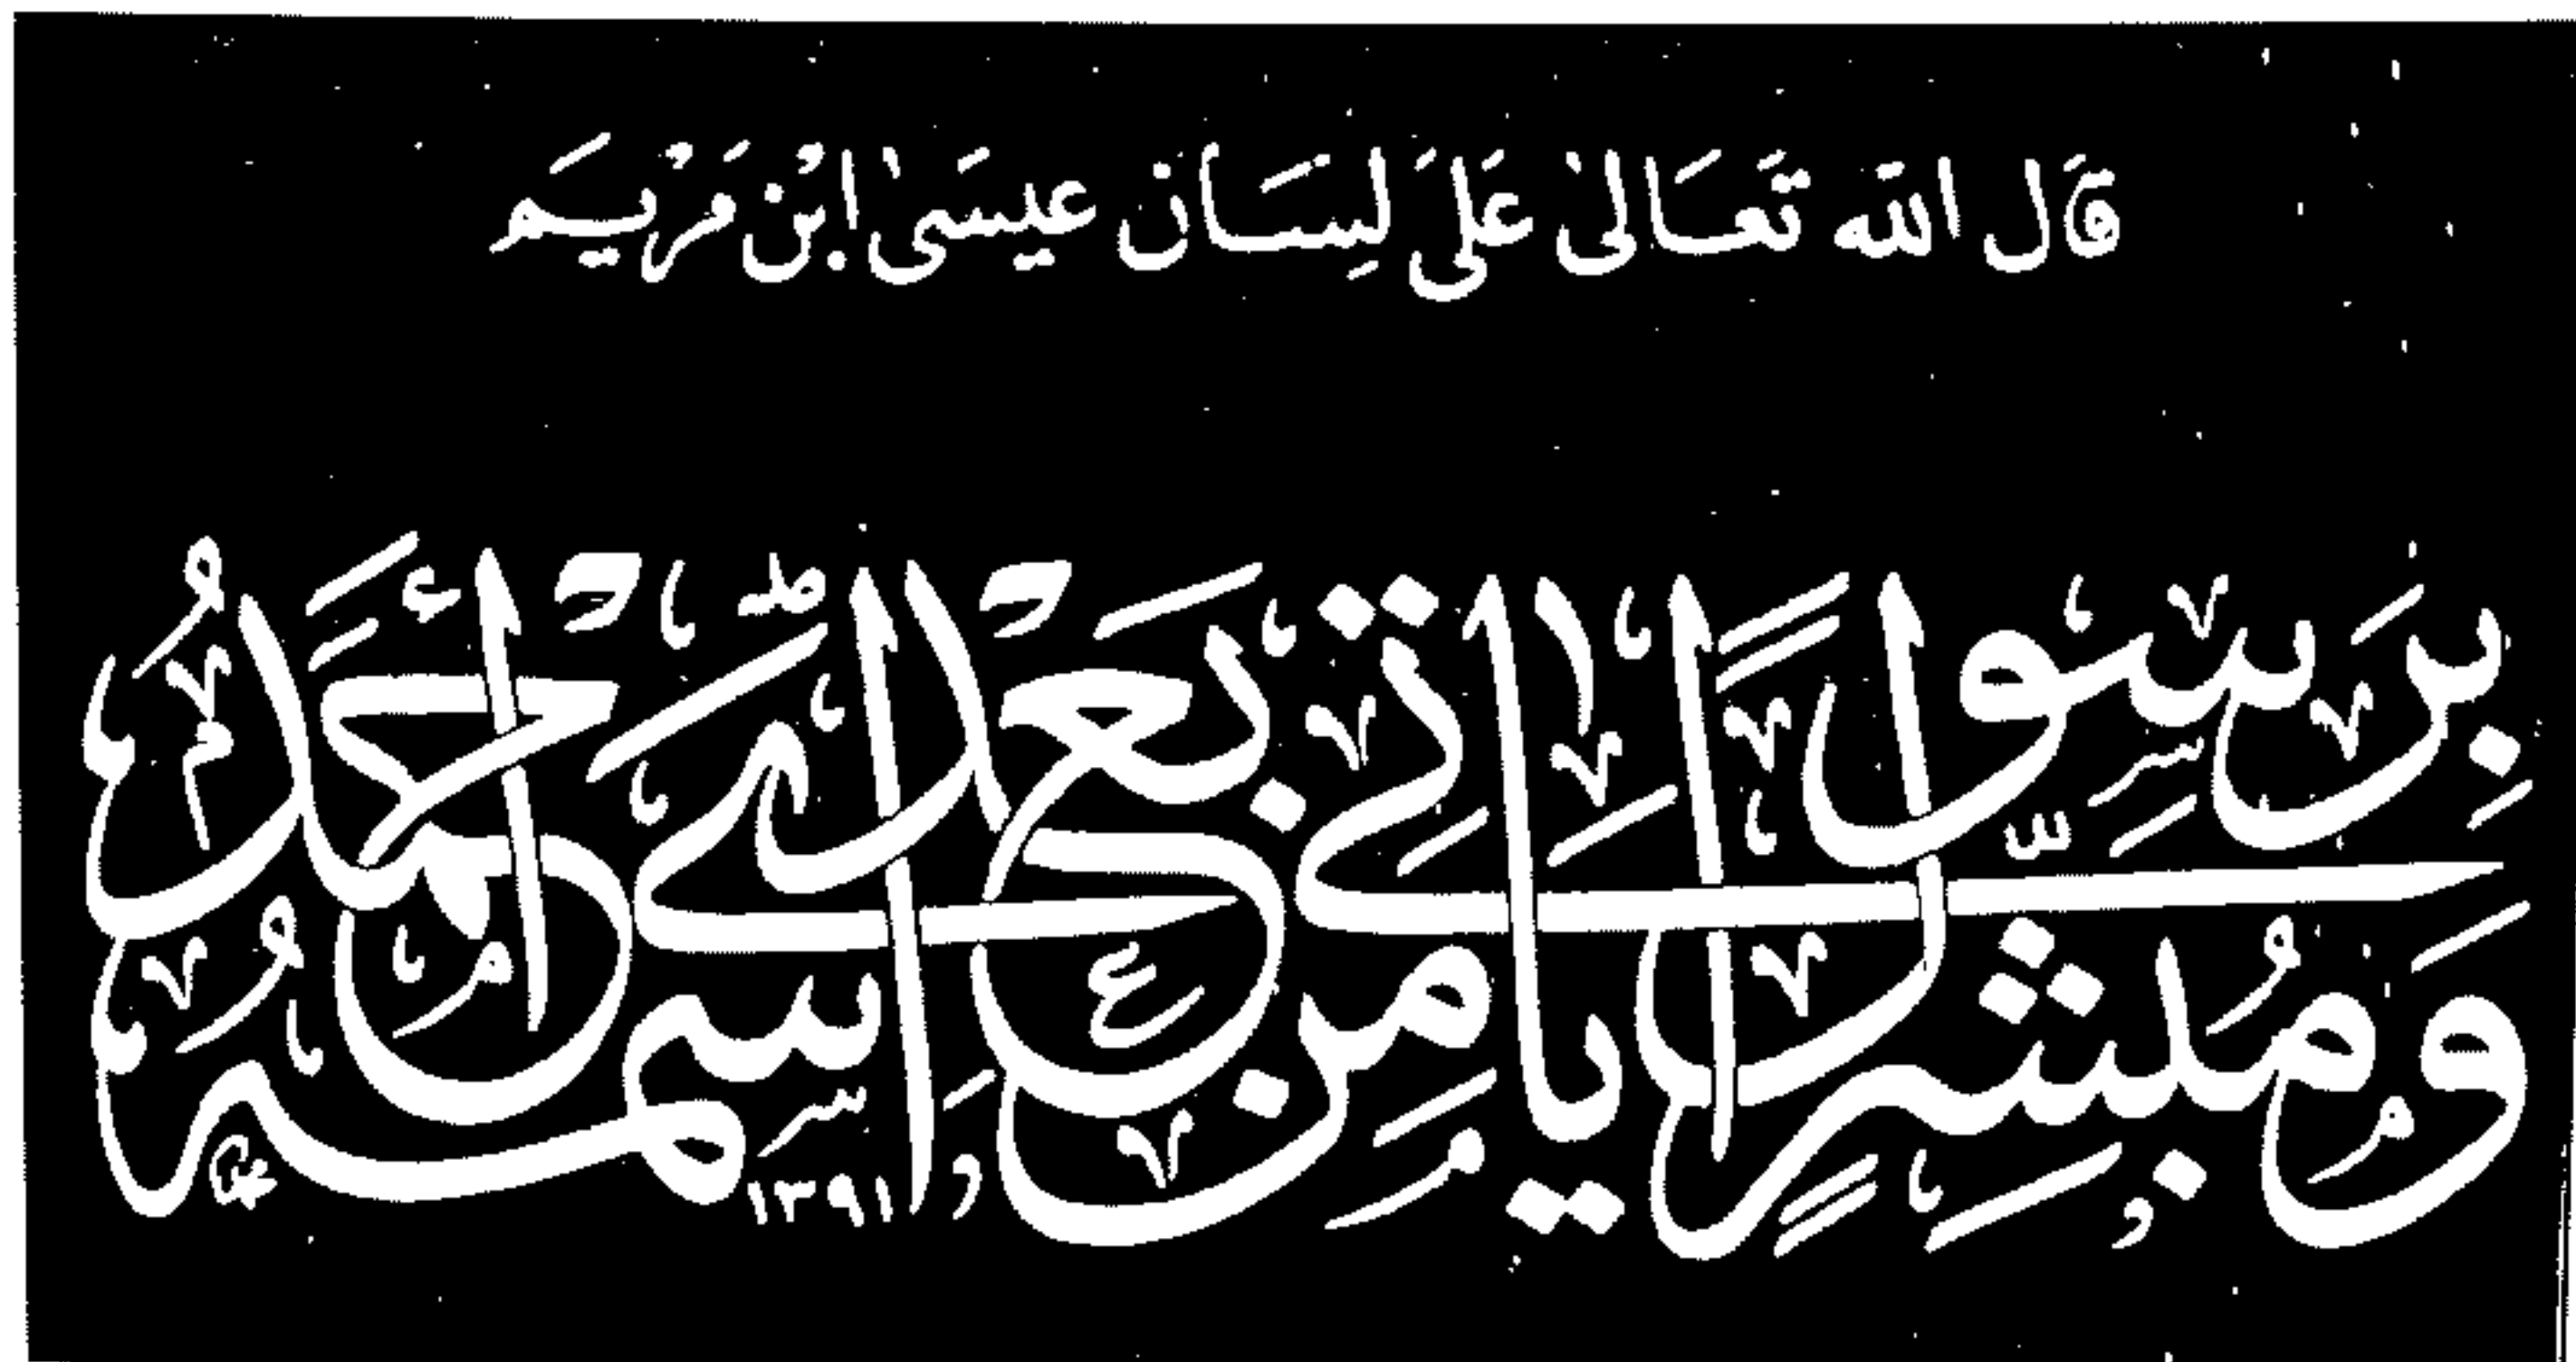 قَالَ اللّٰه تَعَالىٰ عَلىَ لِسَان عيسَىٰ ابْن مَرْيَم
وَمُبَشِّرًا بِرَسُولٍ يَأتِي مِنْ بَعْدِي اسْمُهُ أَحْمَدُ
١٣٩١